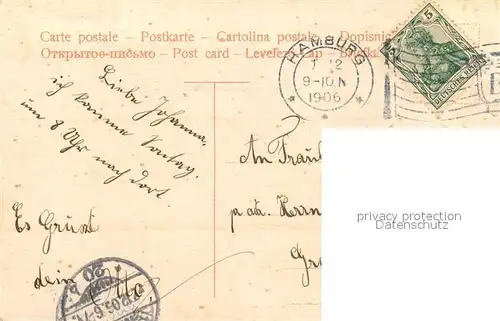 Carte postale – Postkarte – Cartolina postale – Dopisnic
Открытое письмо – Post card – Levelező-Lap –
HAMBURG
12
9-10 N
1906
5
DEUTSCHES REICH
Liebe Johanna,
ich komme Sontag.
um 8 Uhr nach dort.
Es Grüsst
dein Otto
An Fräul
p. adr. Herrn
Gr
privacy protection
Datenschutz